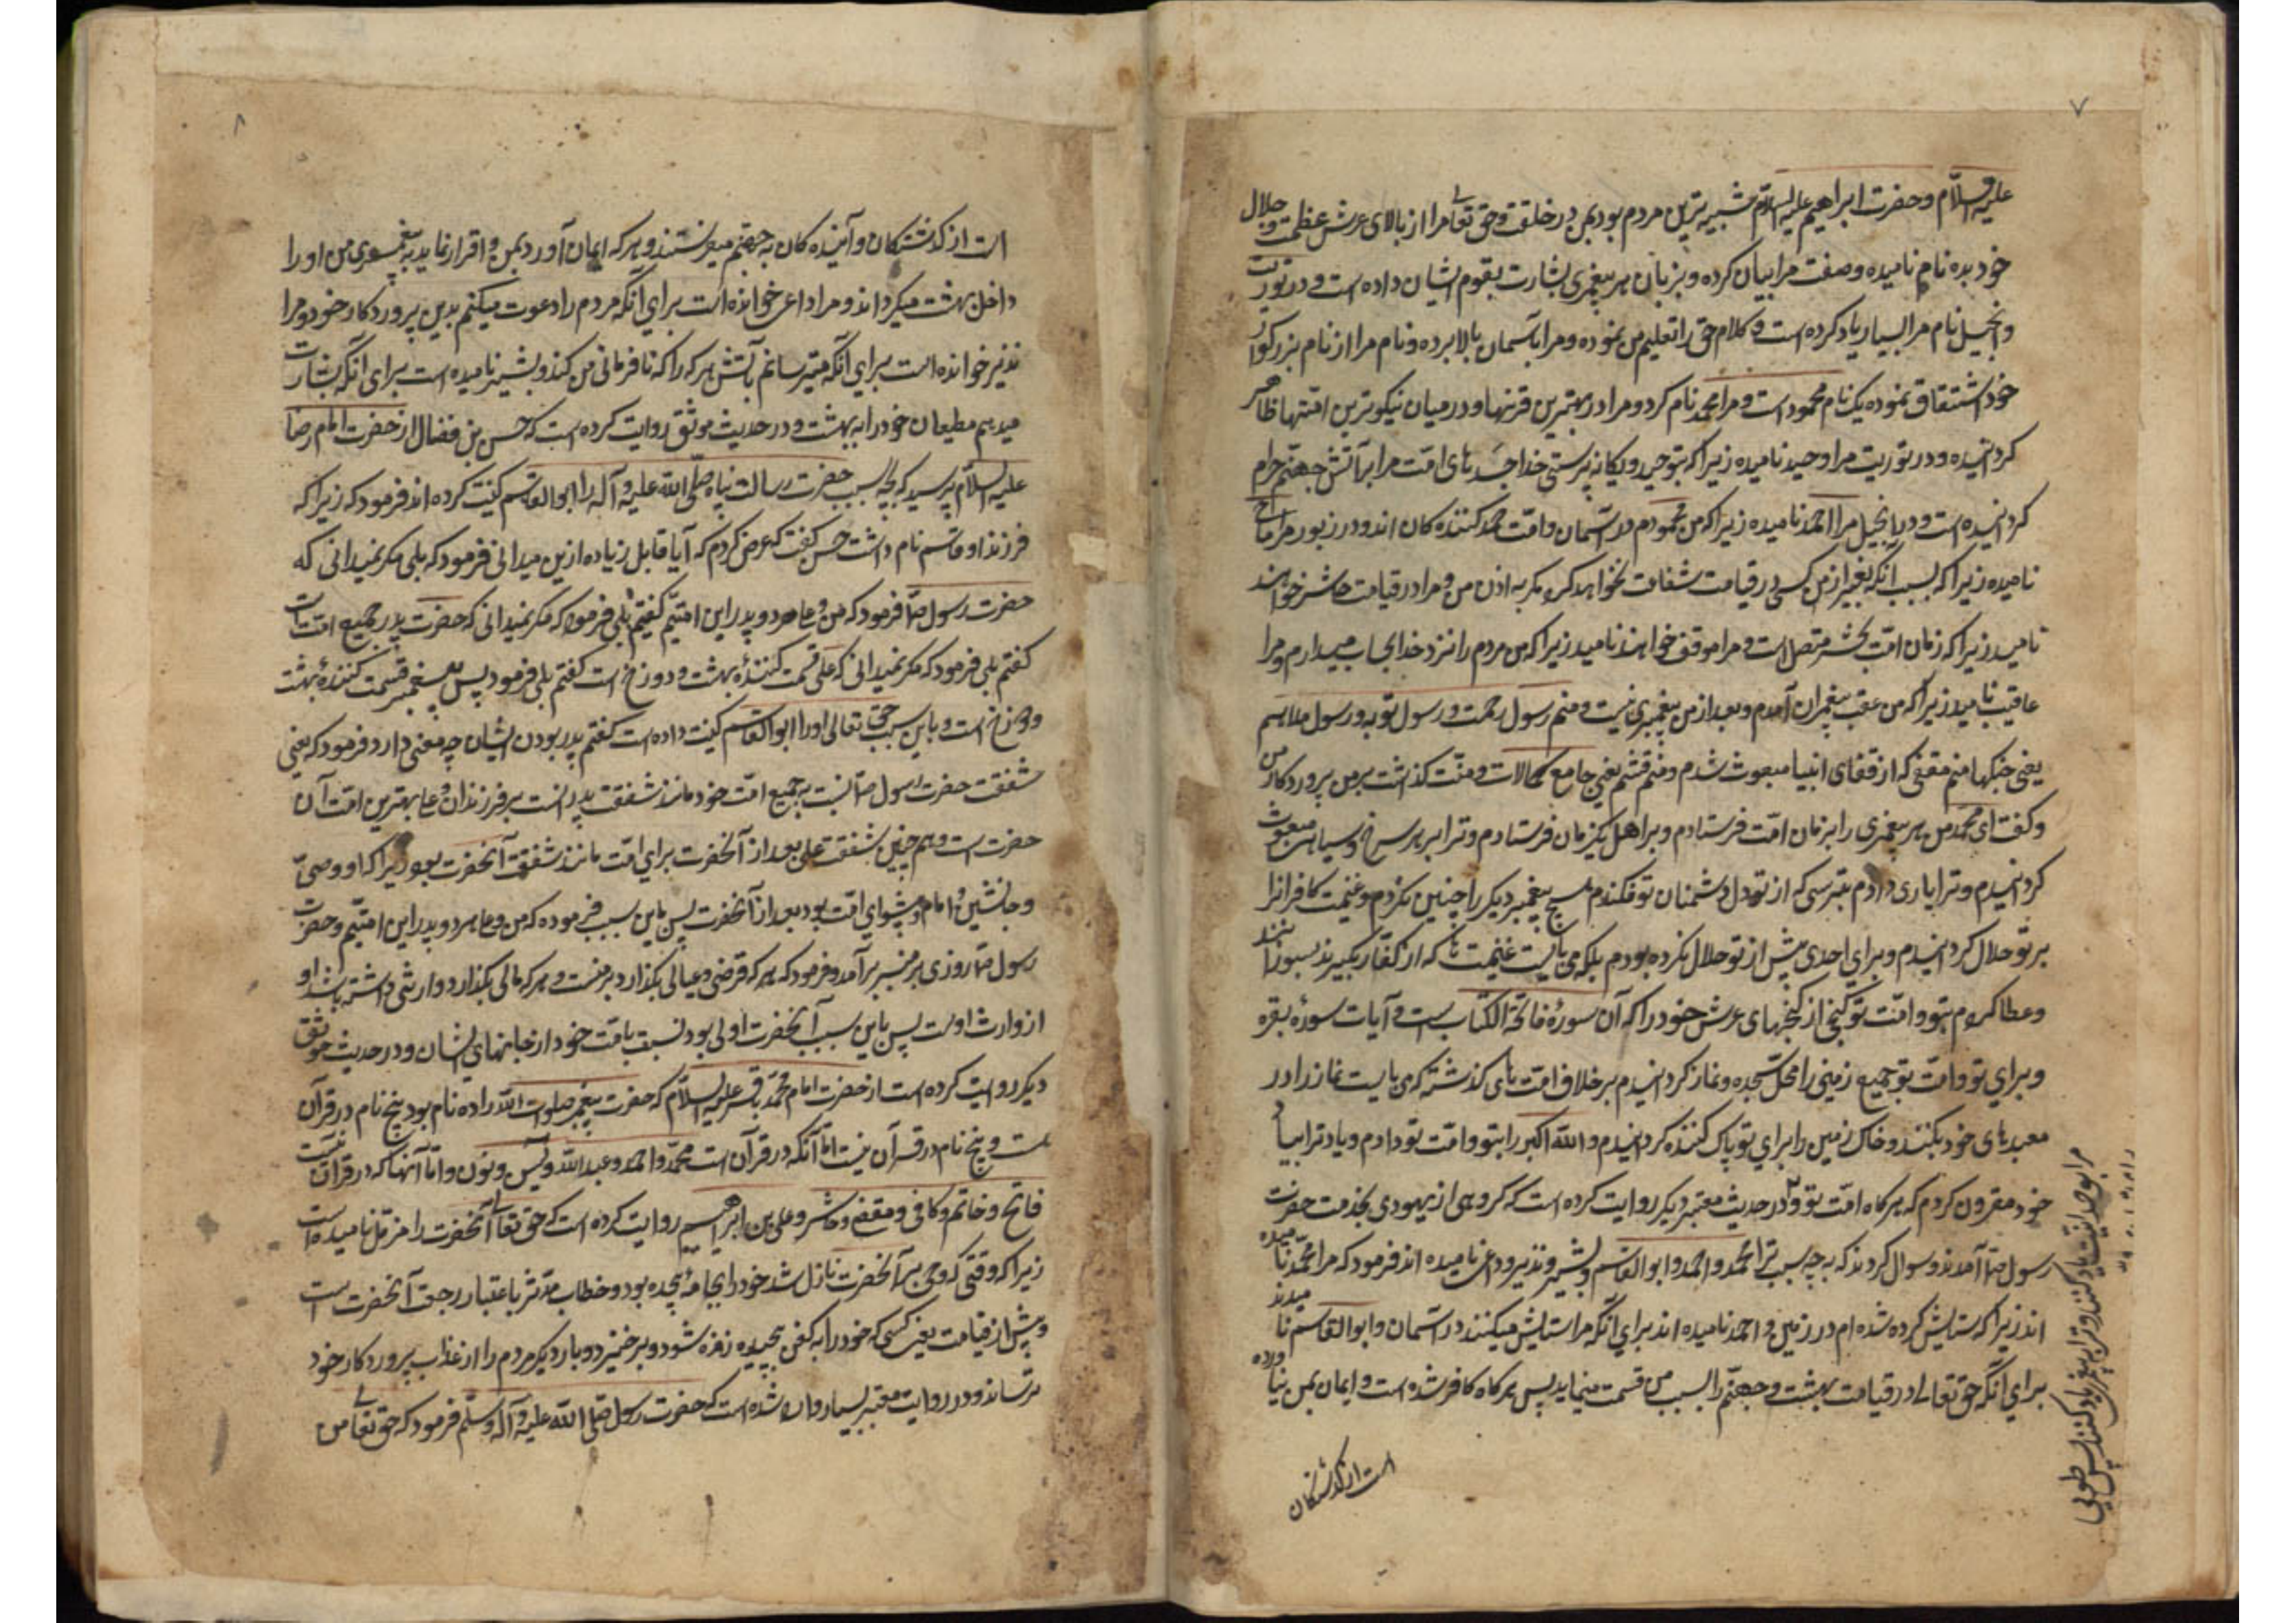 ۷
علیه السلام و حضرت ابراهیم علیه السلام شبیه ترین مردم بود بمن در خلقت و حق تعالی مرا از بالای عرش عظمت و جلال
خود بده نام نامیده و صفت مرا بیان کرده و بزبان هر پیغمبری بشارت بقوم ایشان داده است و در توریت
و انجیل نام مرا بسیار یاد کرده است و کلام حق را تعلیم من نموده و مرا بآسمان بالا برده و نام مرا از نام بزرکوار
خود اشتقاق نموده یک نام محمود است و مرا محمد نام کرد و مرا در بهترین قرنها و در میان نیکوترین امتها ظاهر
کردانیده و در توریت مرا وحید نامیده زیرا که بتوحید و یکانه پرستی خدا جسدهای امت مرا بر آتش جهنم حرام
کردانیده است و در انجیل مرا احمد نامیده زیرا که من محمودم در آسمان و امت حمد کننده کان اند و در زبور مرا ماحی
نامیده زیرا که بسبب آنکه بغیر از من کسی در قیامت شفاعت نخواهد کرد مکر به اذن من و مرا در قیامت حاشر خواهند
نامید زیرا که زمان امت بحشر متصل است و مرا موقف خواهند نامید زیرا که من مردم را نزد خدا بحساب میدارم و مرا
عاقب نامید زیرا که من عقب پیغمبران آمدم و بعد از من پیغمبری نیست و منم رسول رحمت و رسول توبه و رسول ملاحم
یعنی جنکها منم مقفی که از قفای انبیا مبعوث شدم و منم قثم یعنی جامع کمالات و منت کذاشت بر من پروردکار من
و کفت ای محمد من هر پیغمبری را بزبان امت فرستادم و بر اهل یکزبان فرستادم و ترا بر هر سرخ و سیاهی مبعوث
کردانیدم و ترا یاری دادم بترسی که از تو در دل دشمنان تو فکندم هیچ پیغمبر دیکر را چنین نکردم و غنیمت کافرانرا
بر تو حلال کردانیدم و برای احدی پیش از تو حلال نکرده بودم بلکه می بایست غنیمت ها که از کفار بکیرند بسوزانند
و عطا کردم بتو و امت تو کنجی از کنجهای عرش خود را که آن سورهٔ فاتحة الکتاب است و آیات سورهٔ بقره
و برای تو و امت تو جمیع زمین را محل سجده و نماز کردانیدم بر خلاف امت های کذشته که می بایست نماز را در
معبدهای خود بکنند و خاک زمین را برای تو پاک کننده کردانیدم و الله اکبر را بتو و امت تو دادم و یاد ترا بیاد
خود مقرون کردم که هر کاه امت تو و در حدیث معتبر دیکر روایت کرده است که کروهی از یهودی بخدمت حضرت
رسول ص آمدند و سوال کردند که به چه سبب ترا محمد و احمد و ابو القاسم و بشیر و نذیر و داعی نامیده اند فرمود که مرا محمد نامیده
اند زیرا که ستایش کرده شده ام در زمین و احمد نامیده اند برای آنکه مرا ستایش میکنند در آسمان و ابو القاسم نامیدند
برای آنکه حق تعالی در قیامت بهشت و جهنم را بسبب من قسمت مینماید پس هر کاه کافر شده است و ایمان بمن نیاورده
است از کذشتکان
مرا بوحدانیت یاد کنند و ترا به پیغمبری یاد کنند پس طوبی
۸
است از کذشتکان و آینده کان به جهنم میفرستند و هر که ایمان آورد بمن و اقرار نماید به پیغمبری من او را
داخل بهشت میکرداند و مرا داعی خوانده است برای آنکه مردم را دعوت میکنم بدین پروردکار خود و مرا
نذیر خوانده است برای آنکه میترسانم بآتش هر که را که نافرمانی من کند و بشیر نامیده است برای آنکه بشارت
میدهم مطیعان خود را به بهشت و در حدیث موثق روایت کرده است که حسن بن فضال از حضرت امام رضا
علیه السلام پرسید که بچه سبب حضرت رسالت پناه صلی الله علیه و آله را ابو القاسم کنیت کرده اند فرمود که زیرا که
فرزند او قاسم نام داشت حسن کفت که عرض کردم که آیا قابل زیاده ازین میدانی فرمود که بلی مکر نمیدانی که
حضرت رسول ص فرمود که من و علی هر دو پدر این امتیم کفتم بلی فرمود که مکر نمیدانی که حضرت پدر جمیع امت است
کفتم بلی فرمود که مکر نمیدانی که علی قسمت کنندهٔ بهشت و دوزخ است کفتم بلی فرمود پس پیغمبر قسمت کنندهٔ بهشت
و دوزخ است و باین سبب حق تعالی او را ابو القاسم کنیت داده است کفتم پدر بودن ایشان چه معنی دارد فرمود که یعنی
شفقت حضرت رسول ص نسبت به جمیع امت خود مانند شفقت پدرانست بر فرزندان و علی بهترین امت آن
حضرت است و هم چنین شفقت علی بعد از آنحضرت برای امت مانند شفقت آنحضرت بود زیرا که او وصی
و جانشین و امام و پیشوای امت بود بعد از آنحضرت پس باین سبب فرموده که من و علی هر دو پدر این امتیم و حضرت
رسول ص روزی بر منبر برآمد و فرمود که هر که قرضی و عیالی بکذارد بر منست و هر که مالی بکذارد و وارثی داشته باشد او
از وارث اوست پس باین سبب آنحضرت اولی بود نسبت بامت خود از جانهای ایشان و در حدیث موثق
دیکر روایت کرده است از حضرت امام محمد باقر علیه السلام که حضرت پیغمبر صلوات الله را ده نام بود پنج نام در قرآن
است و پنج نام در قرآن نیست اما آنکه در قرآن است محمد و احمد و عبد الله و یس و نون و اما آنها که در قرآن نیست
فاتح و خاتم و کافی و مقفی و حاشر و علی بن ابراهیم روایت کرده است که حق تعالی آنحضرت را مزمل نامیده است
زیرا که وقتی که وحی بر آنحضرت نازل شد خود را بجامهٔ پیچیده بود و خطاب مدثر باعتبار رجعت آنحضرت است
پیش از قیامت یعنی کسی که خود را به کفن پیچیده زنده شود و برخیز دو بار دیکر مردم را از عذاب پروردکار خود
ترساند و در روایت معتبر بسیار وارد شده است که حضرت رسول صلی الله علیه و آله و سلم فرمود که حق تعالی من